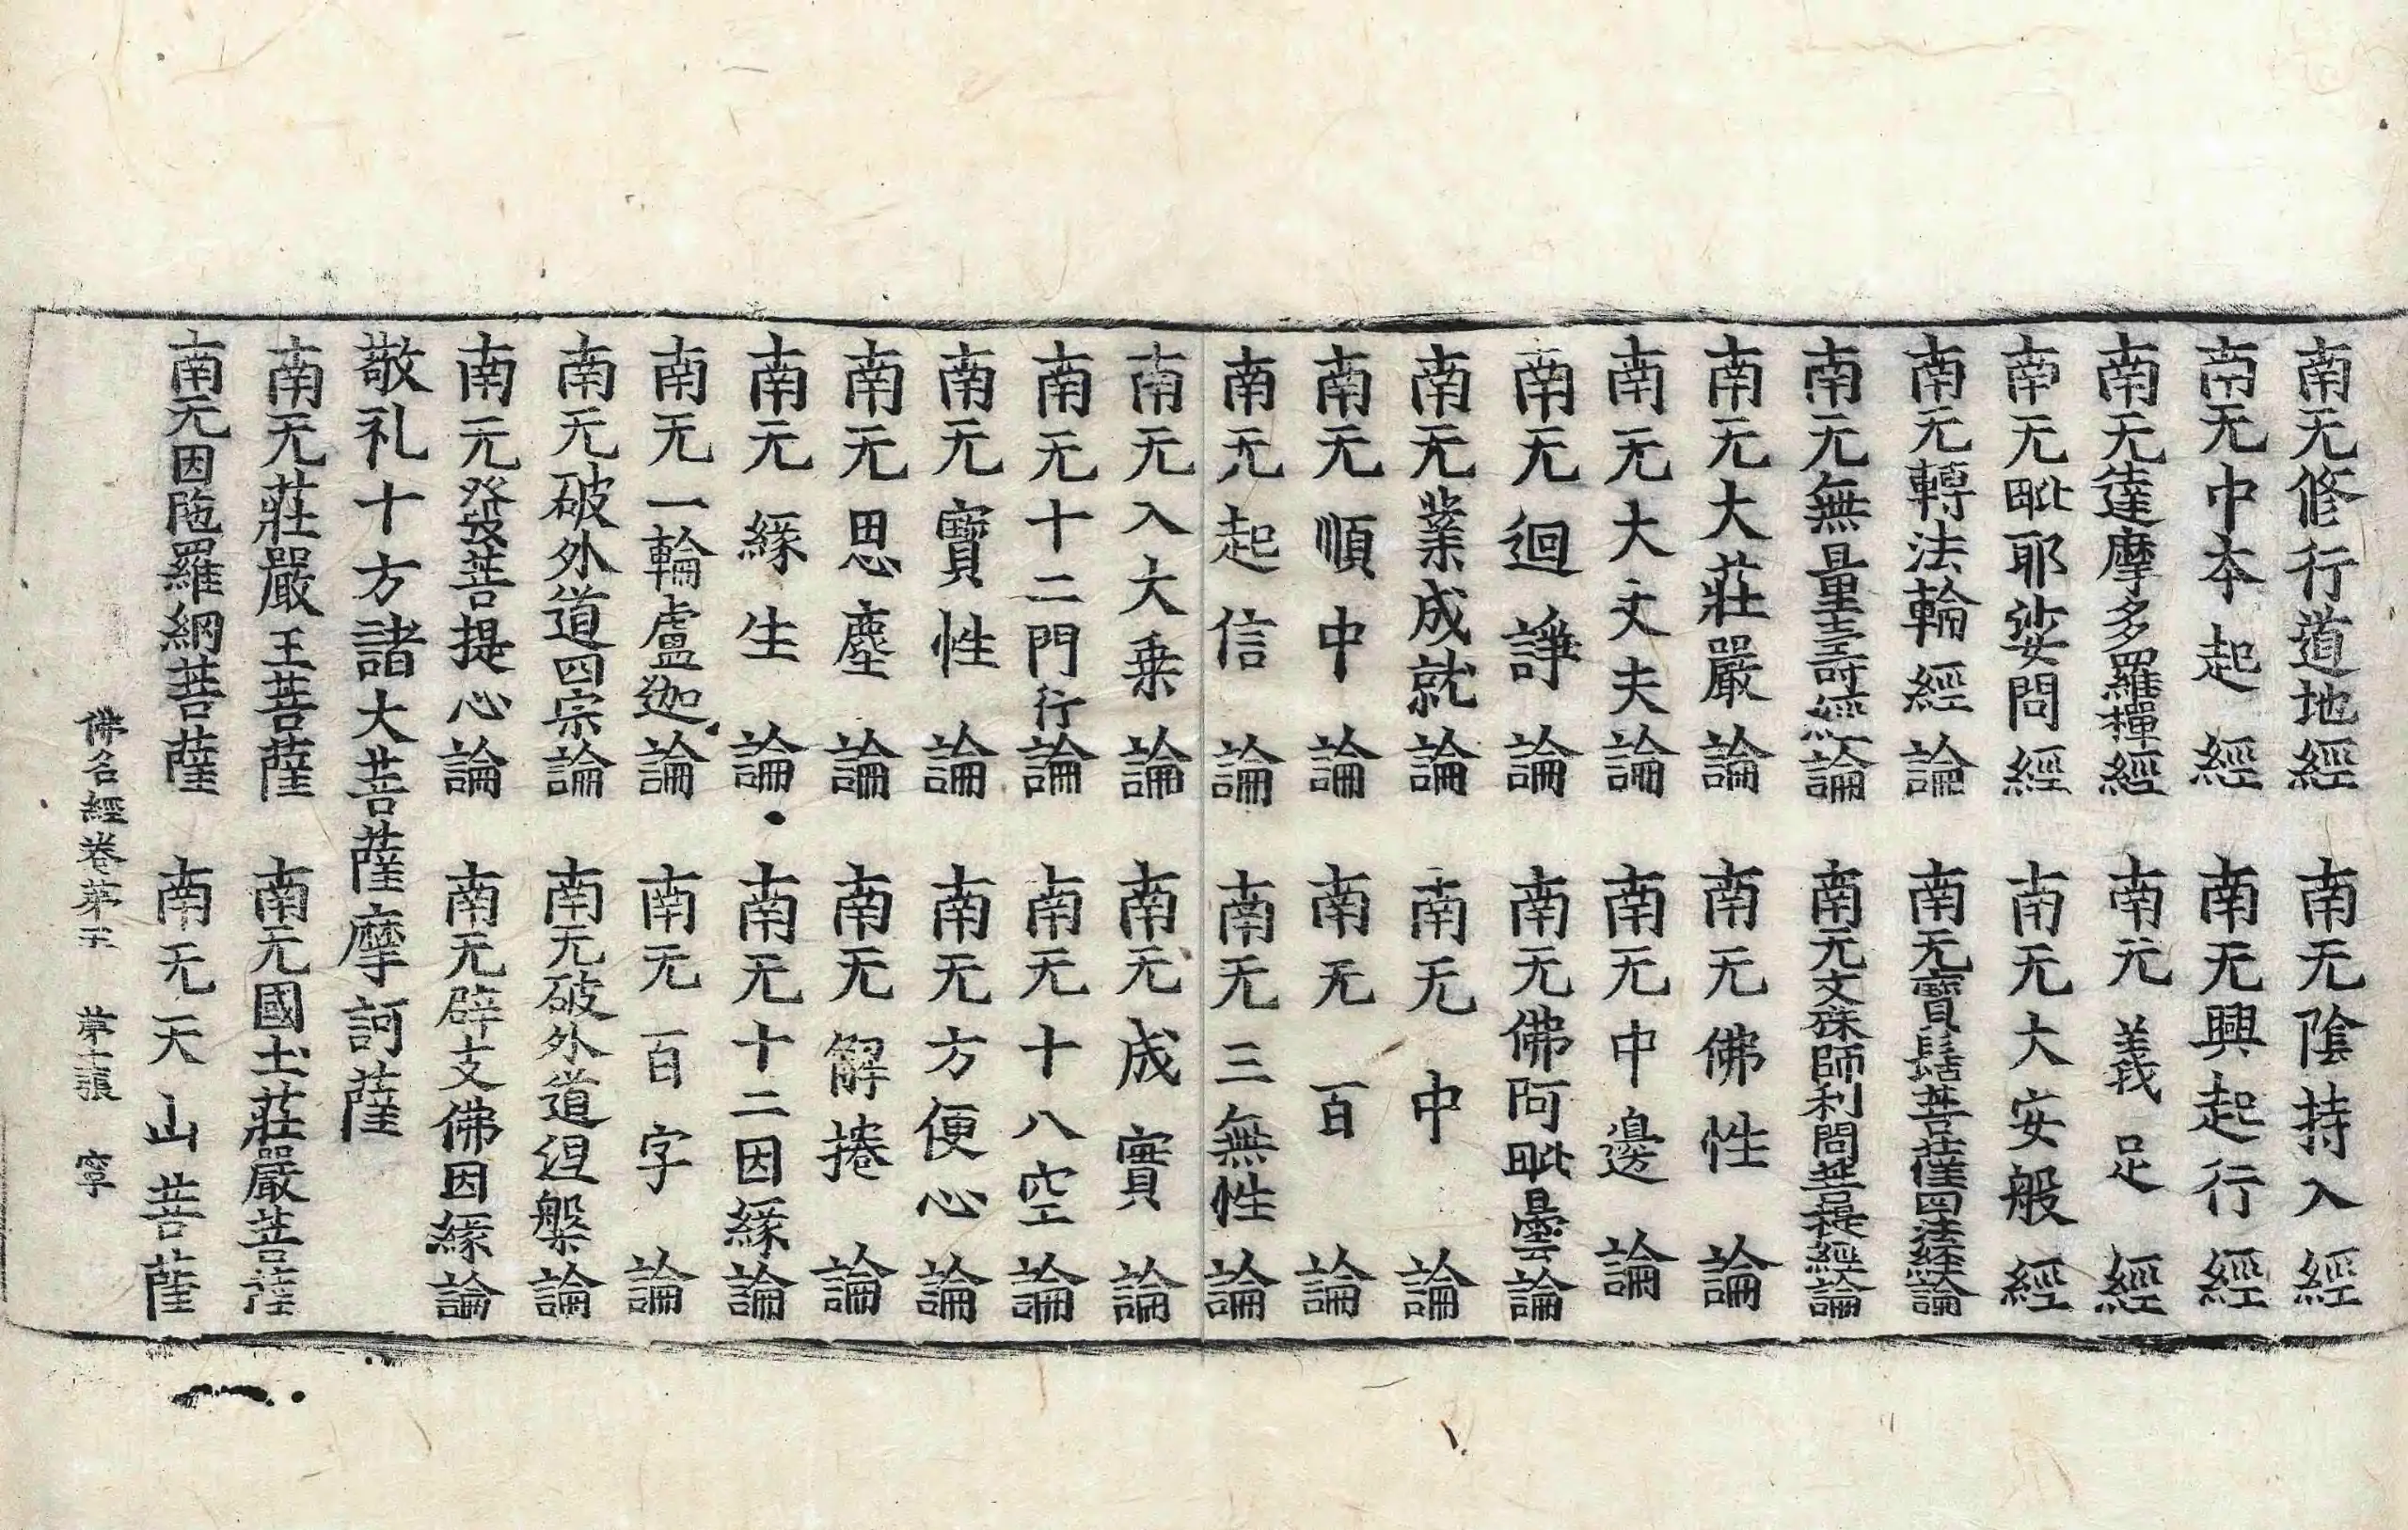 南无修行道地經 南无陰持入經
南无中本起經 南无興起行經
南无達摩多羅禪經 南无義足經
南无毗耶娑問經 南无大安般經
南无轉法輪經論 南无寶髻菩薩四法經論
南无無量壽經論 南无文殊師利問菩提經論
南无大莊嚴論 南无佛性論
南无大丈夫論 南无中邊論
南无迴諍論 南无佛阿毗曇論
南无業成就論 南无中論
南无順中論 南无百論
南无起信論 南无三無性論
南无入大乗論 南无成實論
南无十二門行論 南无十八空論
南无寶性論 南无方便心論
南无思塵論 南无解捲論
南无緣生論 南无十二因緣論
南无一輪盧迦論 南无百字論
南无破外道四宗論 南无破外道涅槃論
南无發菩提心論 南无辟支佛因緣論
敬礼十方諸大菩薩摩訶薩
南无莊嚴王菩薩 南无國土莊嚴菩薩
南无因陁羅網菩薩 南无天山菩薩
佛名經卷苐 苐張 寧